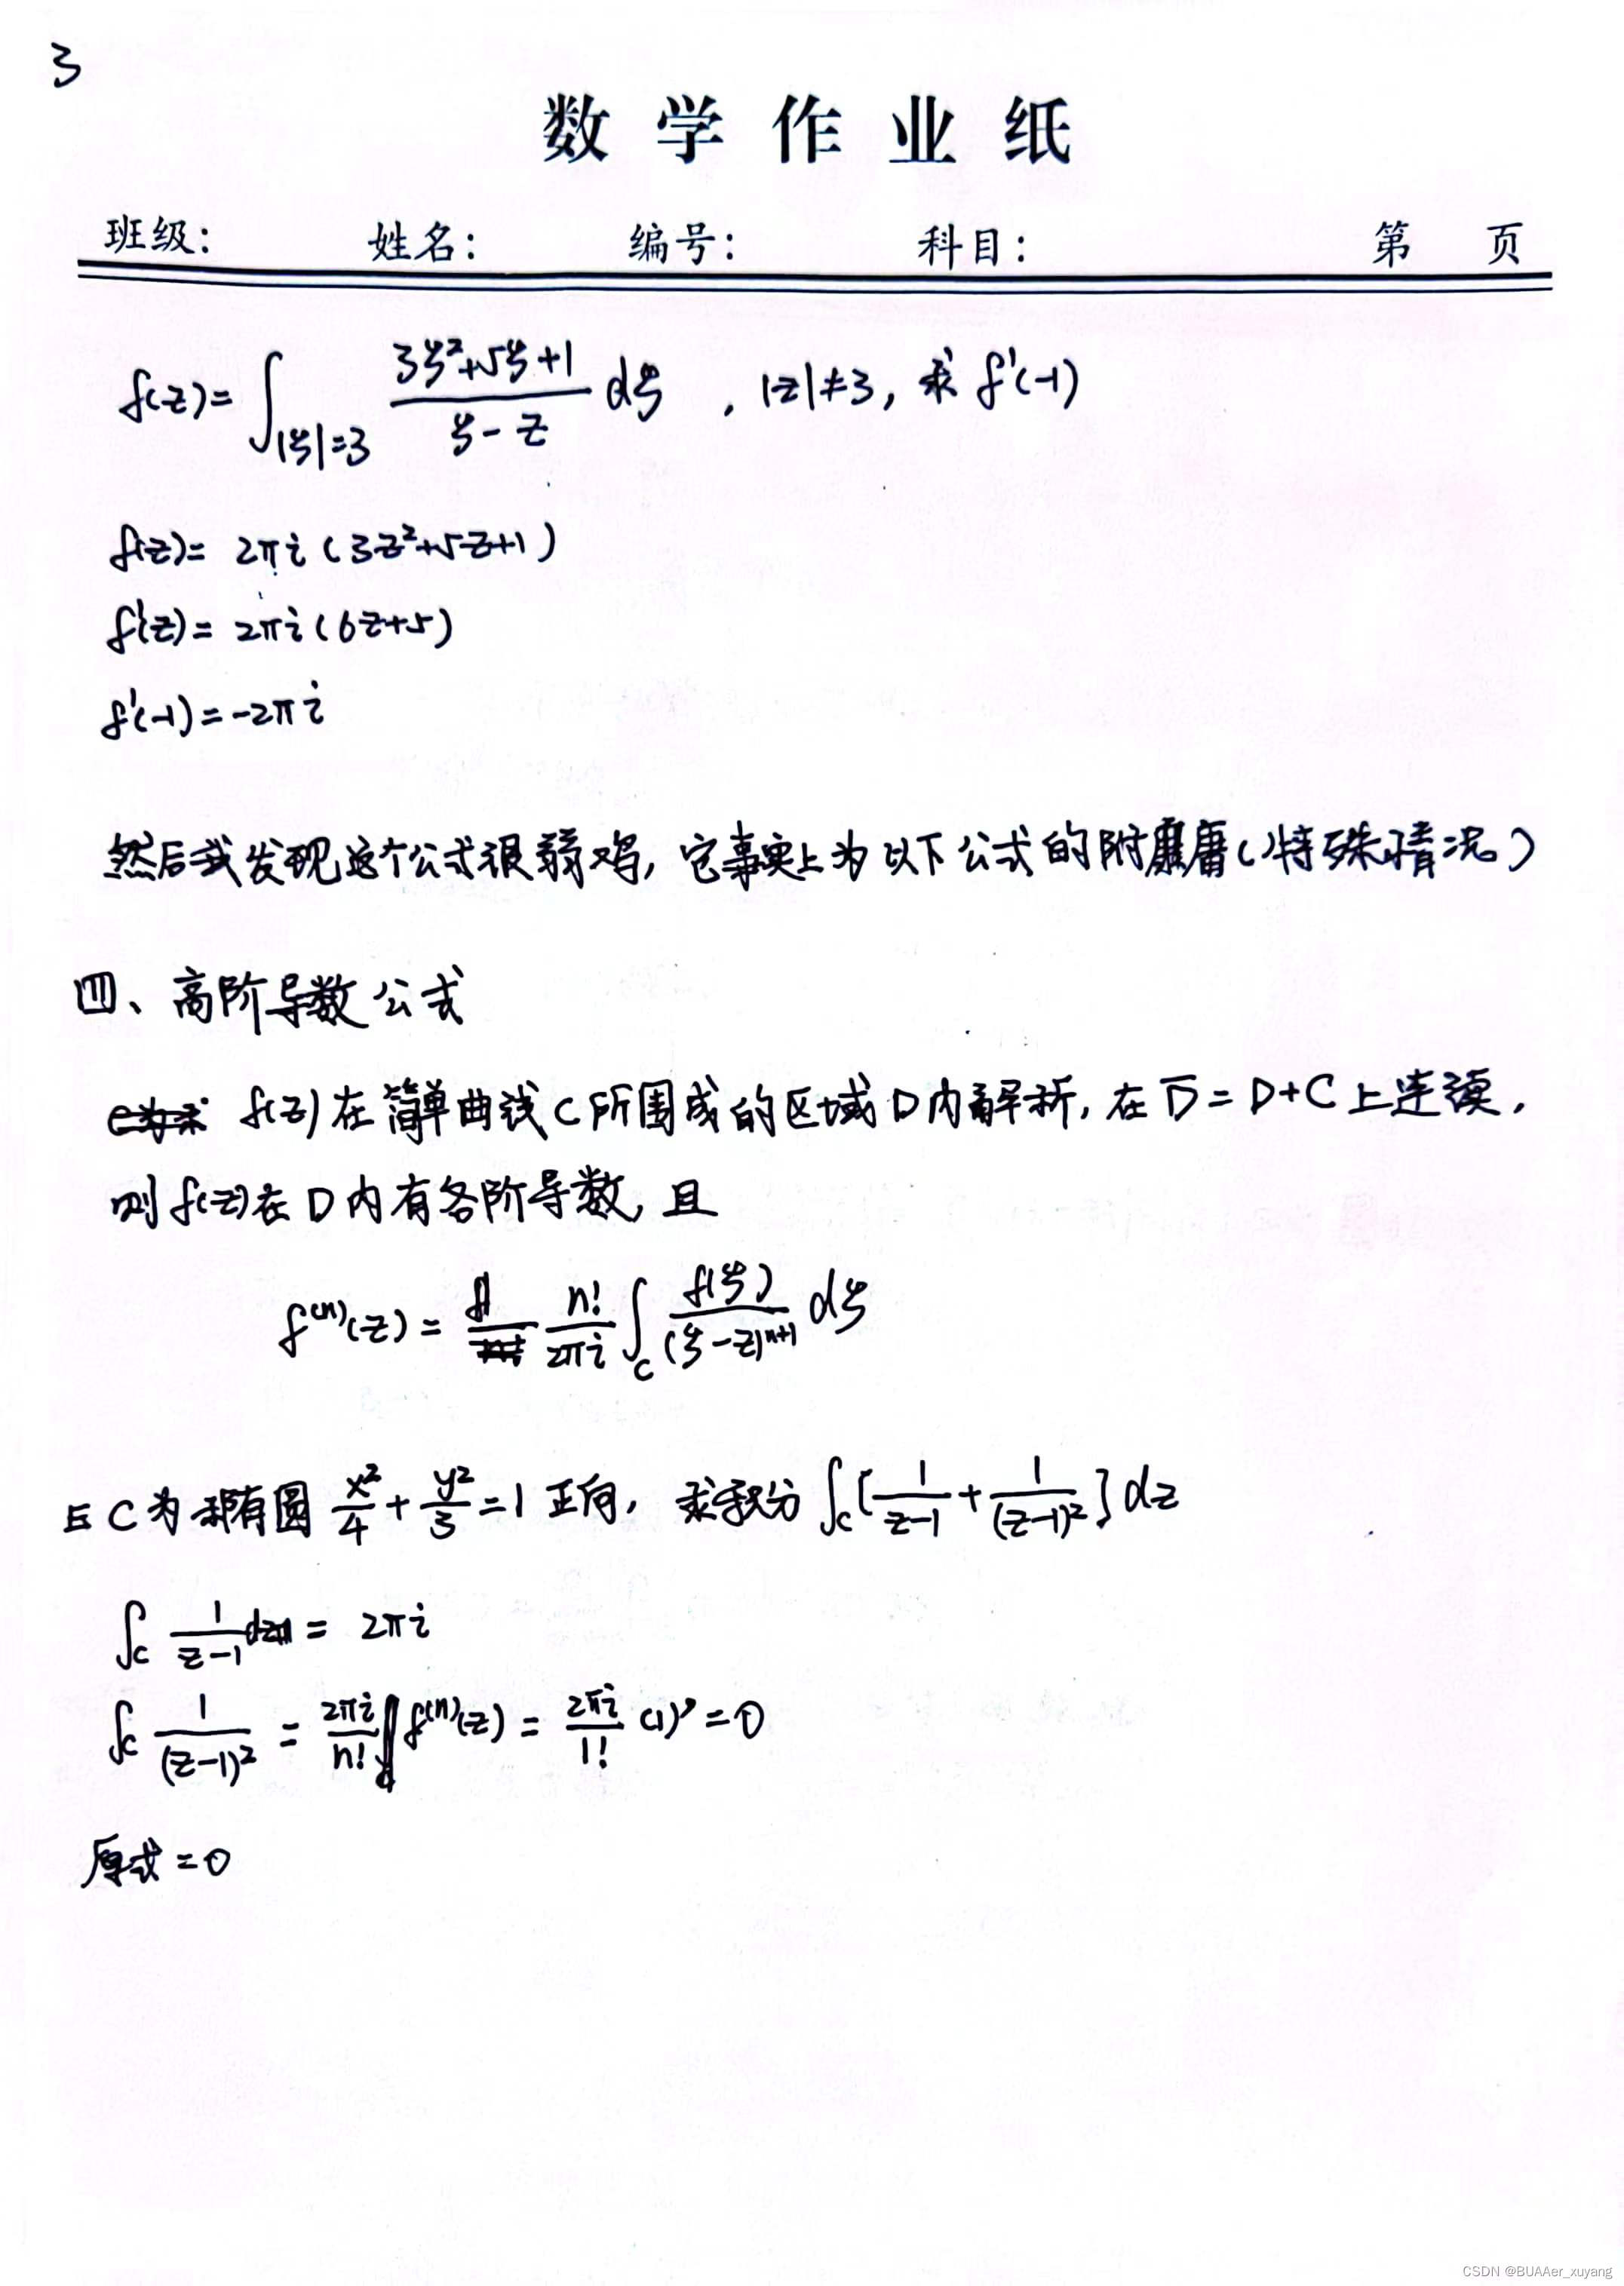 3
数学作业纸
班级: 姓名: 编号: 科目: 第 页
f(z)= ∫_{|ξ|=3} (3ξ²+5ξ+1)/(ξ-z) dξ , |z|≠3, 求 f'(-1)
f(z)= 2πi (3z²+5z+1)
f'(z)= 2πi(6z+5)
f'(-1)=-2πi
然后我发现这个公式很弱鸡, 它事实上为以下公式的附庸(特殊情况)
四、高阶导数公式
f(z)在简单曲线C所围成的区域D内解析, 在 D̅=D+C上连续,
则f(z)在D内有各阶导数, 且
f⁽ⁿ⁾(z) = n!/(2πi) ∫_C f(ξ)/(ξ-z)ⁿ⁺¹ dξ
E C为椭圆 x²/4 + y²/3 =1 正向, 求积分 ∫_C [1/(z-1) + 1/(z-1)²] dz
∫_C 1/(z-1) dz = 2πi
∫_C 1/(z-1)² = 2πi/n! f⁽ⁿ⁾(z) = 2πi/1! (1)' =0
原式=0
CSDN @BUAAer_xuyang